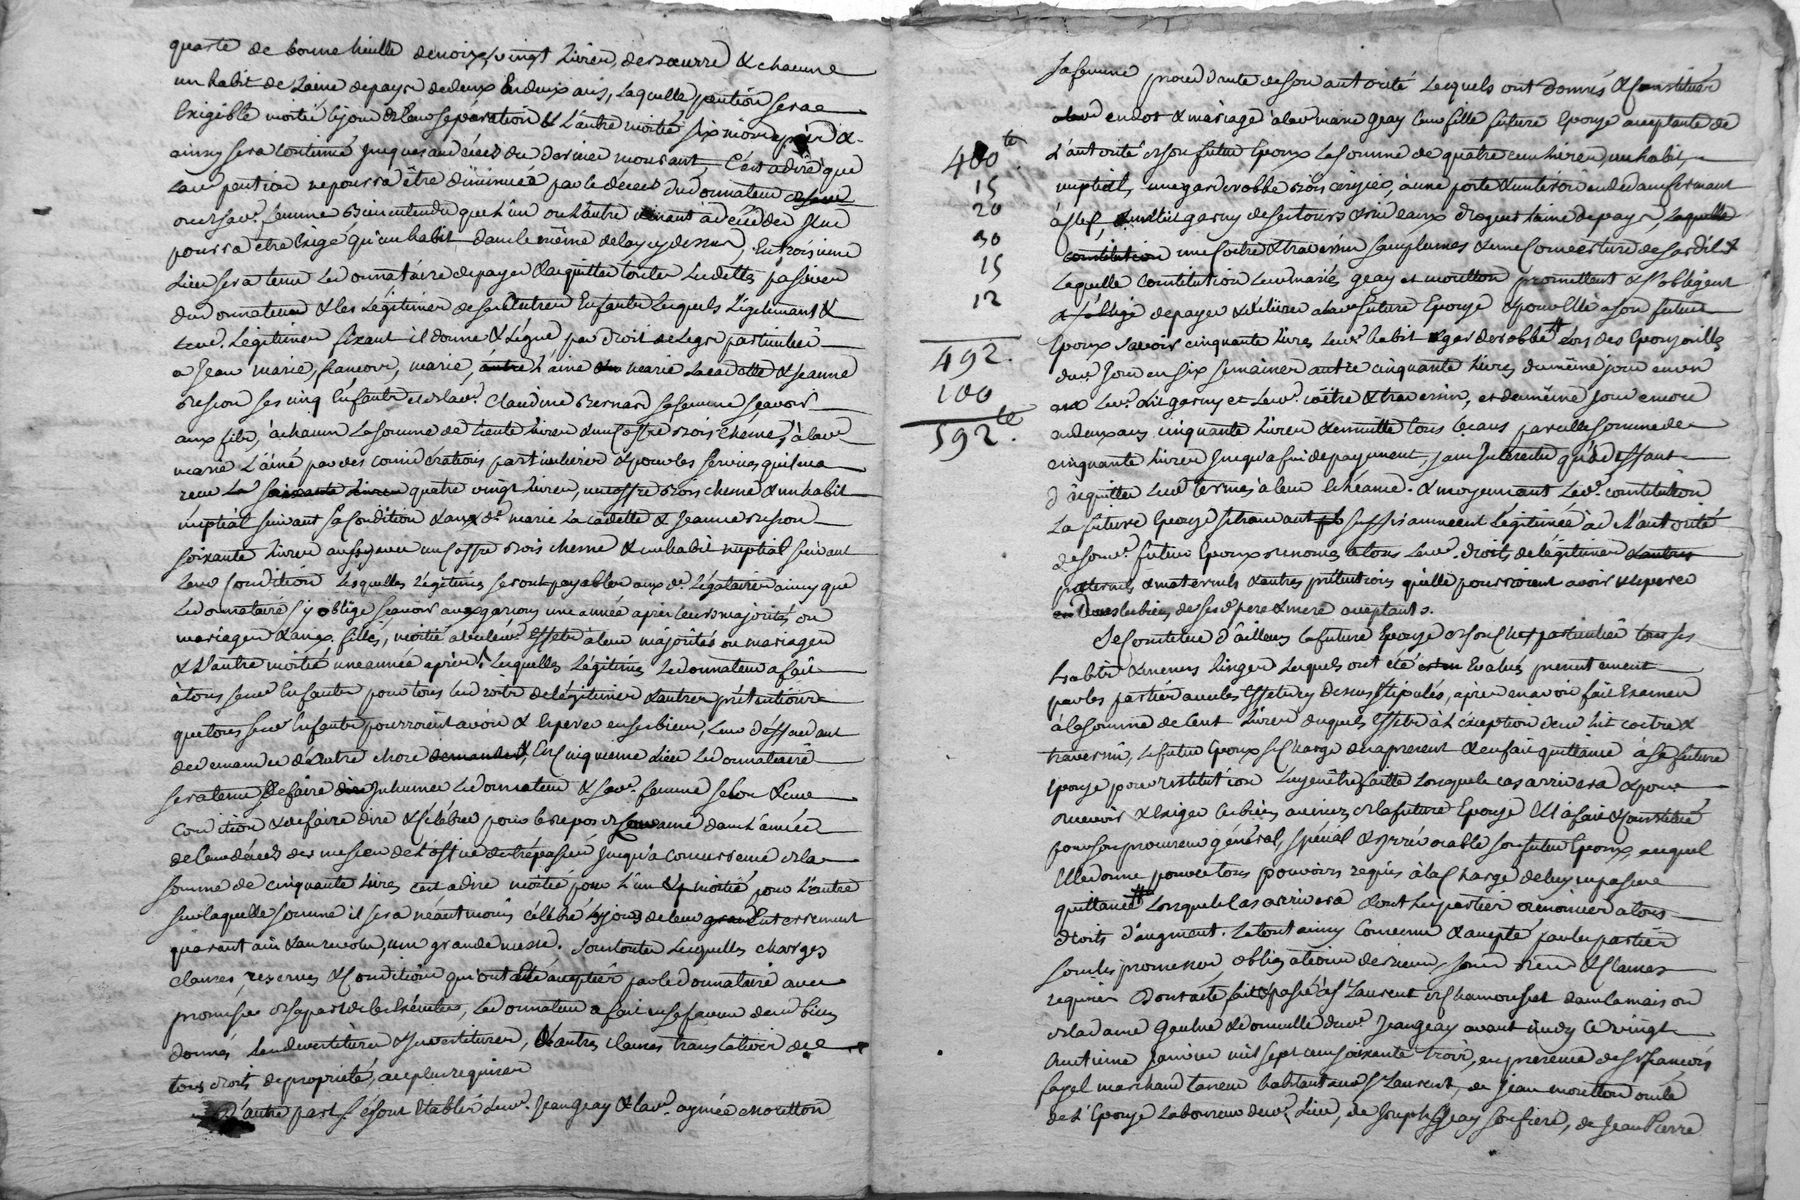 quarte de bonne huille de noix, vingt livres de beurre & chacune
un habit de laine de pays de deux en deux ans, laquelle pention sera
Exigible moitié le jour de leur séparation & l'autre moitié six mois après &
ainsy sera continué jusques au décès du dernier mourant, C'est à dire que
lad. pention ne pourra être diminuée par le décès dud. donnateur
ou de sad. femme, bien entendu que l'un ou l'autre venant à décéder il ne
pourra être exigé qu'un habit dans le même délay cy dessus, En troisieme
Lieu sera tenu le donnataire de payer & acquitter toutes les dettes passives
du donnateur & les légitimes de ses autres Enfants lesquels légitimant &
leurd. Légitimes fixant il donne & légue par droit de legs particulier
a Jean marie, francois, marie, l'ainé marie la cadette & Jeanne
Besson ses cinq Enfants & de lad. Claudine Bernard sa femme sçavoir
aux fils, à chacun la somme de trente livres & un coffre bois chêne, à lad.
marie l'ainé par des considerations particulieres & pour les services qu'il en a
reçu la soixante livres quatre vingt livres, un coffre bois chesne & un habit
nuptial suivant sa condition & aux de marie la cadette & Jeanne Besson
soixante livres aussy avec un coffre bois chesne & un habit nuptial suivant
leur condition lesquelles légitimes seront payables aux d. légataires ainsy que
le donnataire s'y oblige sçavoir aux garçons une année après leurs majorités ou
mariages & aux filles, moitié avec leurd. effets à leur majorités ou mariages
& l'autre moitié une année après, lesquelles légitimes le donnateur a fait
à tous sesd. Enfants pour tous les droits de légitimes & autres prétentions
que tous sesd. Enfants pourroient avoir & espérer en ses biens, leur déffendant
de demander d'autre chose demander, En Cinquieme Lieu le donnataire
sera tenu de faire inhumer le donnateur & sad. femme selon leur
condition & de faire dire & célébrer pour le repos de leur ame dans l'année
de leur décès des messes de l'office de trépassés jusqu'a concurrence de la
somme de cinquante livres c'est a dire moitié pour l'un & moitié pour l'autre
sur laquelle somme il sera néantmoins célébré les jours de leur enterrement
quarantain & an revolu, une grande messe. Sous toutes lesquelles charges
clauses, reserves & Conditions qui ont été acceptées par le donnataire avec
promesse de sa part de les Exécuter, Led. donnateur a fait en sa faveur de sesd. biens
donnés les devestitures & Investitures, & autres clauses translatives de
tous droits de propriété, au plus requises
D'autre part se sont Etablis led. Jean Geay & lad. aymée Moutton
sa femme procedante de son autorité Lesquels ont donnés & constitués
en dot & mariage à lad. marie Geay leur fille future Epouse acceptante de
l'autorité de son futur Epoux la somme de quatre cent livres, un habit
nuptial, une garderobbe bois cerisier, à une porte & un tiroir en dedans fermant
à clef, un lit garny de ses tours & rideaux drogues laine de pays, laquelle
constitution une coitre & traversin sans plumes & une couverture de sardis &
laquelle constitution lesd. mariés Geay et Moutton promettent & s'obligent
& s'oblige de payer & délivrer a lad. future Epouse & pour Elle à son futur
Epoux sçavoir cinquante livres led. habit & garderobbe lors des Epousailles
dud. jour en six semaines autre cinquante livres du même jour en un
an led. lit garny et led. coitre & traversin, et du même jour encore
a deux ans cinquante livres & ensuitte tous les ans pareille somme de
cinquante livres jusqu'a fin de payement, sans interets qu'a deffaut
d'acquitter led. termes a leur échéance. & moyennant led. constitution
la future Epouse se trouvant suffisamment légitimée à de l'autorité
de son d. futur Epoux renoncé a tous led. droits de légitimes
paternels & maternels & autres prétentions qu'elle pourroient avoir & espérer
sur les biens de sesd. pere & mere acceptants.
Se Constitue d'ailleurs la future Epouse de son chef particulier tous ses
habits & menus linges lesquels ont été Evalués presentement
par les parties avec les Effets cy dessus stipulés, après en avoir fait Examen
à la somme de cent livres desquels Effets à l'exception desd. lit coitre &
traversin, le futur Epoux se charge dès apresent & en fait quittance à sa future
Epouse pour restitution luy en être faitte lorsque le cas arrivera & pour
recevoir & exiger les biens avenirs de la future Epouse Elle à fait & constitué
pour son procureur général, spécial & irrévocable son futur Epoux, auquel
Elle donne pour ce tous pouvoirs requis à la charge de luy en passer
quittance lorsque le cas arrivera dont les parties renoncer a tous
droits d'augment. Le tout ainsy Convenu & accepté par les parties
sous les promesses, obligations de biens, soumissions & Clauses
requises Dont acte fait & passé à St Laurent de Chamousset dans la maison
de la dame Gaulne & domicille dud. Jean Geay avant midy le vingt
huitieme Janvier mil sept cent soixante trois, en presence de Sr francois
fayel marchand tanneur habitant aud. St Laurent, de Jean Moutton oncle
de l'Epouse laboureur dud. Lieu, de Joseph Geay son frere, de Jean Pierre
400 tt
15
20
30
15
12
492.
100
592 tt.